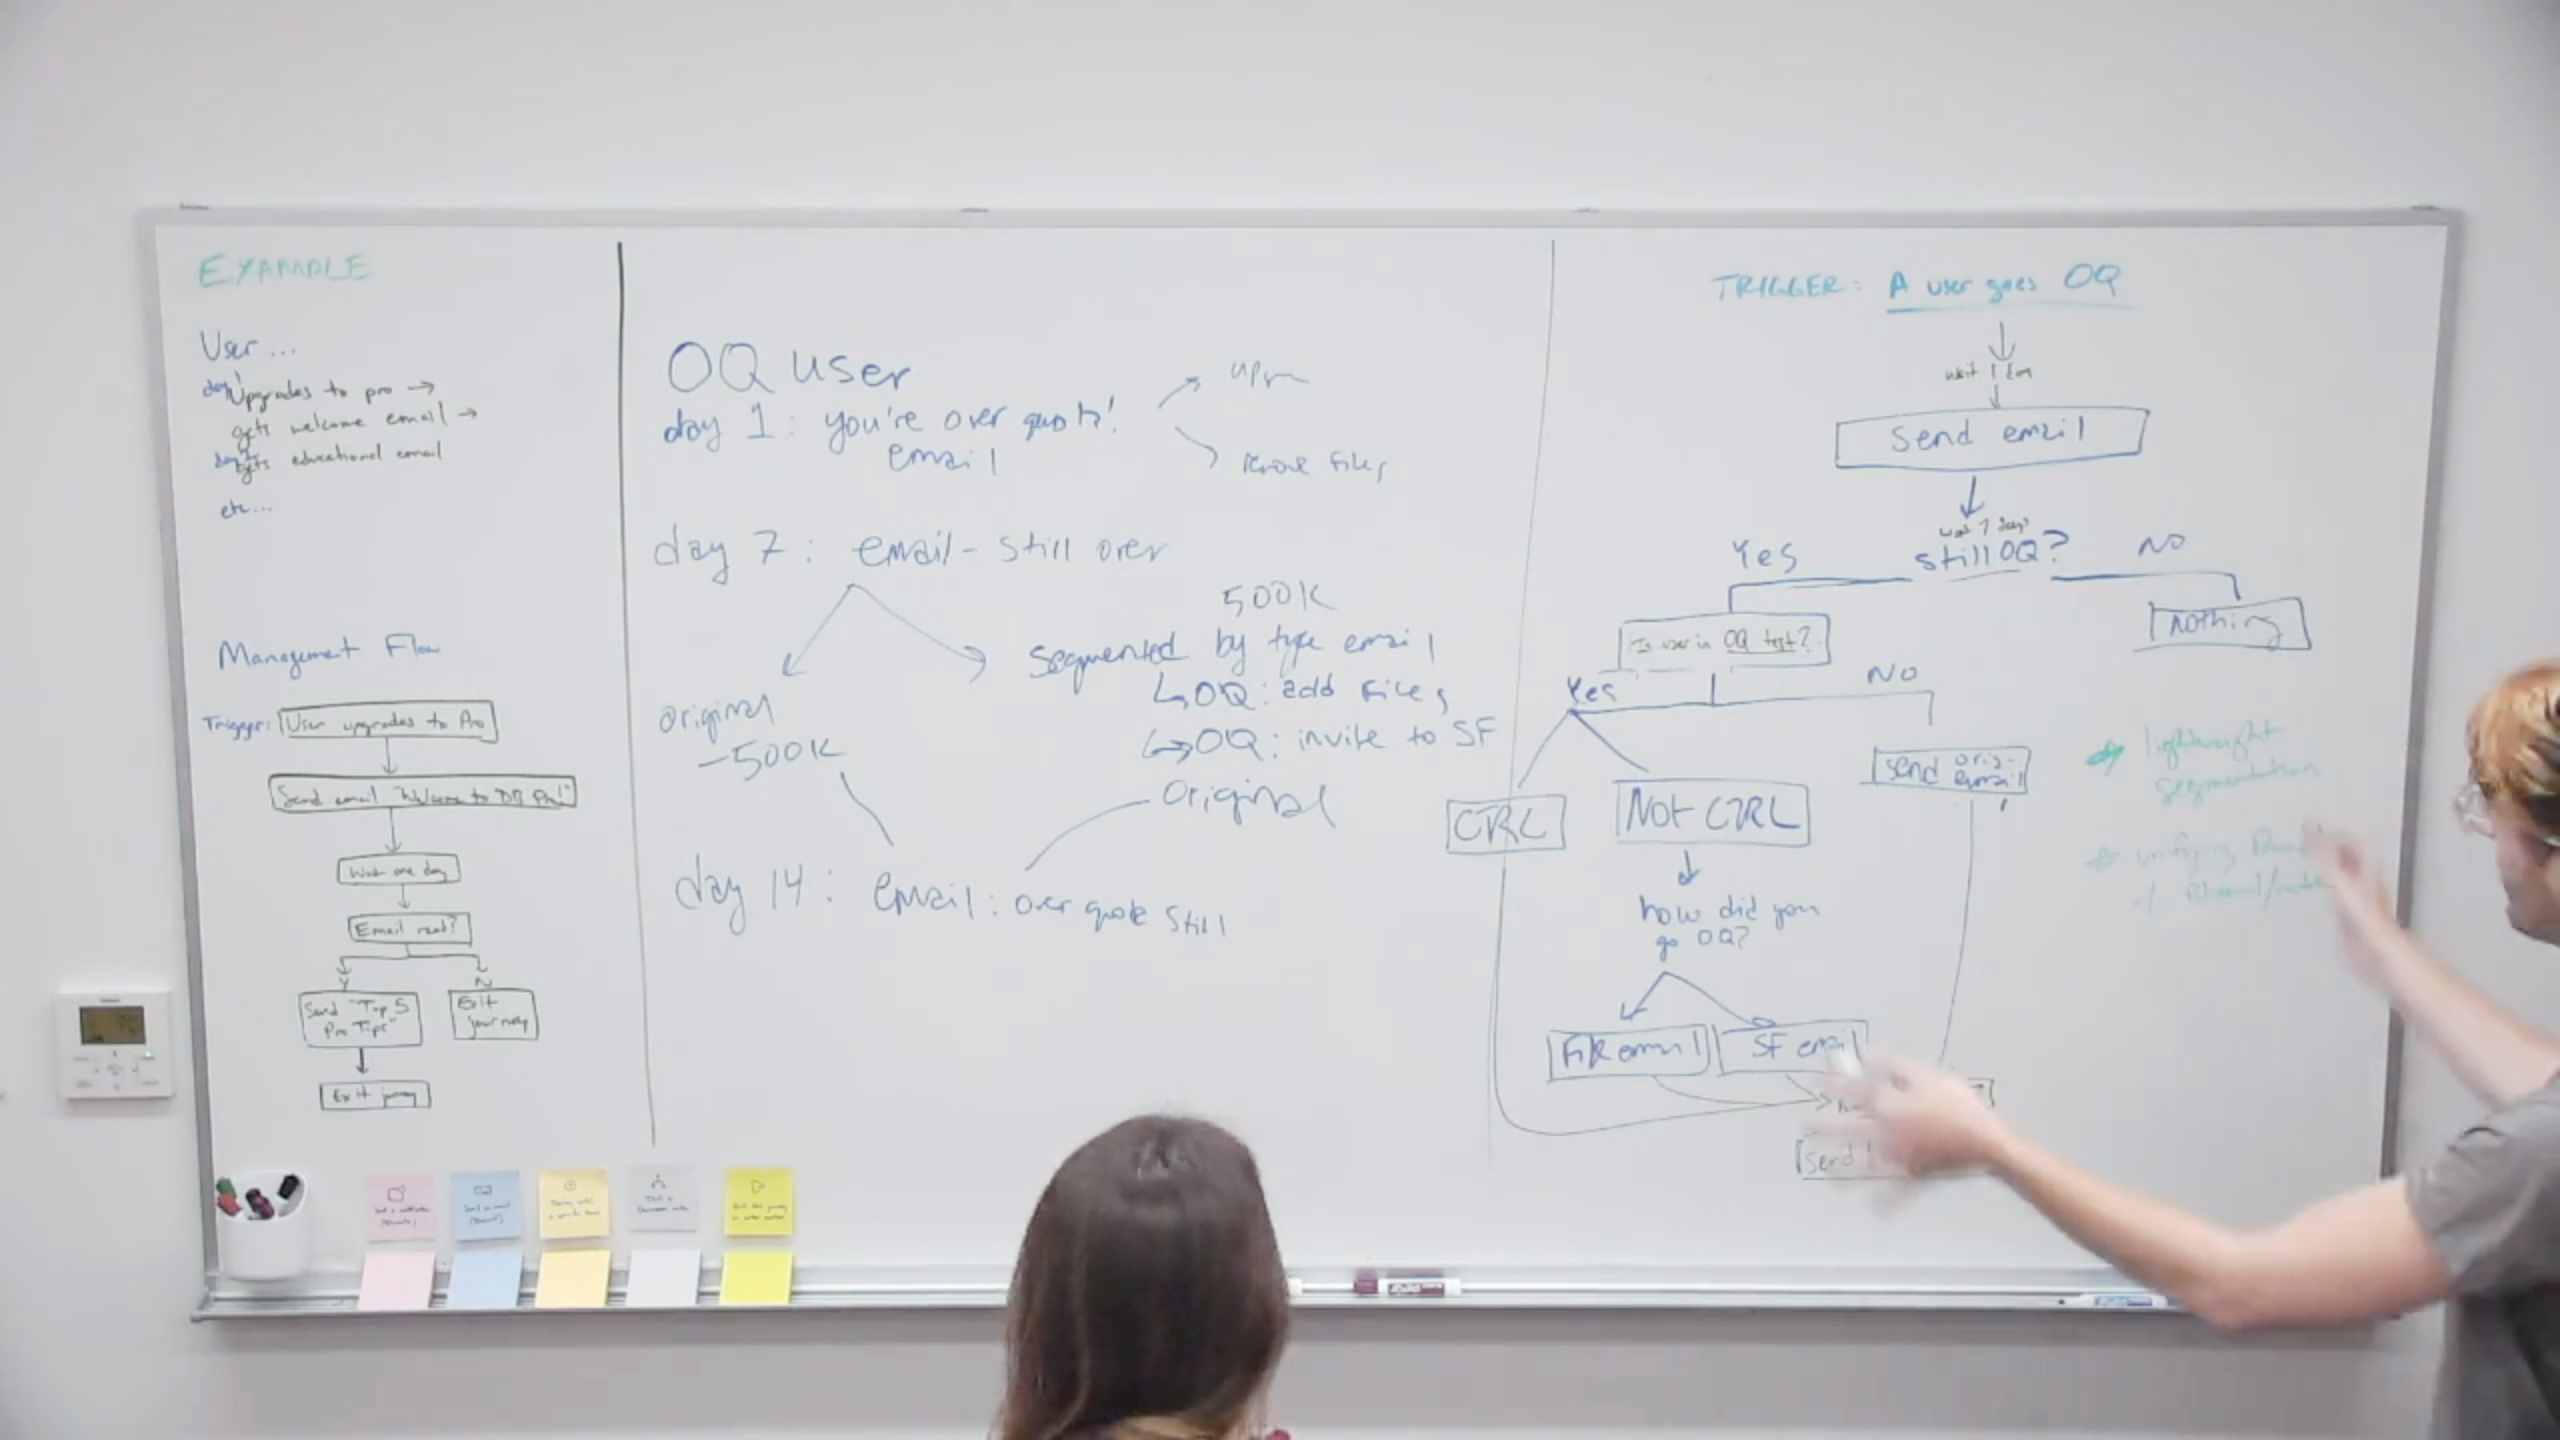 EXAMPLE
User...
day 1
Upgrades to pro →
gets welcome email →
gets educational email
etc...
Management Flow
Trigger: User upgrades to Pro
Send email "Welcome to DB Pro!"
Wait one day
Email read?
Y N
Send "Top 5
Pro Tips"
Exit
journey
Exit journey
OQ user
day 1: you're over quota!
email
remove files
day 7: email - still over
500K
segmented by type email
↳ OQ: add files
↳ OQ: invite to SF
original
original
-500K
day 14: email: over quota still
TRIGGER: A user goes OQ
wait 1
Send email
wait 7 days
Yes still OQ? NO
Is user in OQ test?
nothing
Yes NO
send orig.
email
CTRL
Not CTRL
how did you
go OQ?
File email
SF email
Send
lightweight
segmentation
unifying